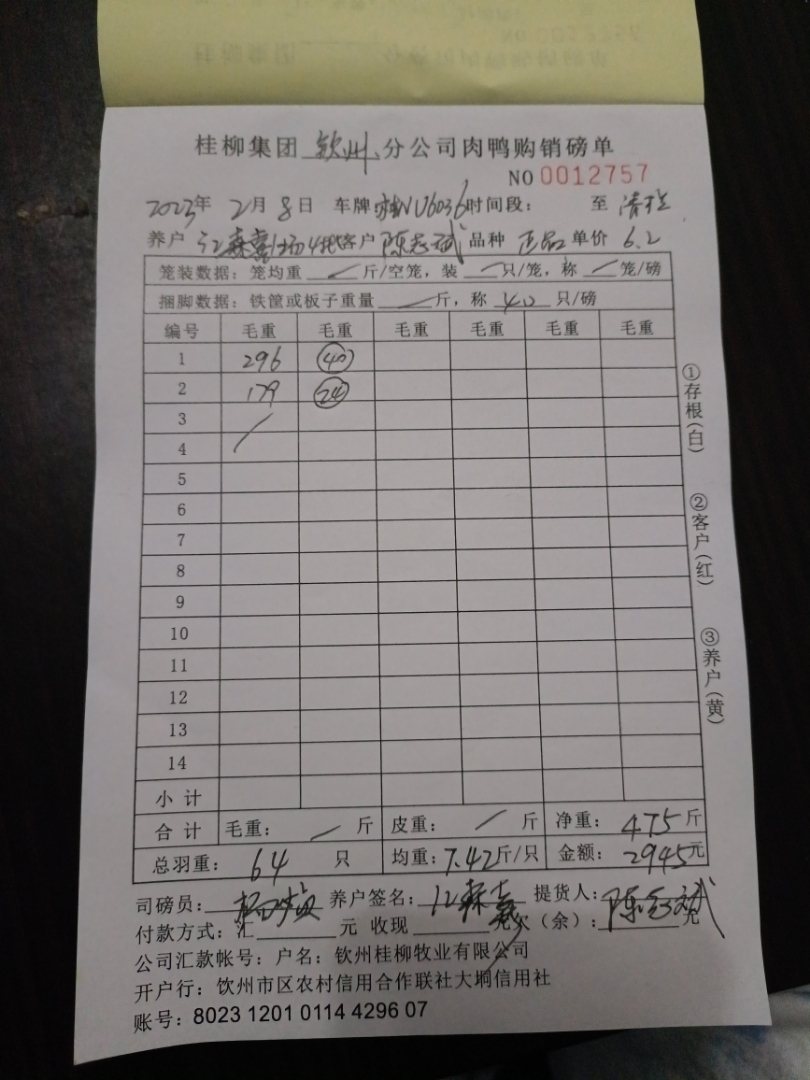 桂柳集团 钦州 分公司肉鸭购销磅单
NO 0012757
2023年 2月 8日 车牌 NU6036 时间段： 至 清栏
养户 江森嘉 客户 陈志斌 品种 正品 单价 6.2
笼装数据：笼均重 / 斤/空笼，装 / 只/笼，称 / 笼/磅
捆脚数据：铁筐或板子重量 / 斤，称 40 只/磅
编号 毛重 毛重 毛重 毛重 毛重 毛重
1 296 40
2 179 24
3 /
4
5
6
7
8
9
10
11
12
13
14
小计
合计 毛重： / 斤 皮重： / 斤 净重： 475 斤
总羽重： 64 只 均重： 7.42 斤/只 金额： 2945 元
司磅员： 养户签名： 江森嘉 提货人： 陈志斌
付款方式：汇 元 收现 元欠（余）： 元
公司汇款帐号：户名：钦州桂柳牧业有限公司
开户行：钦州市区农村信用合作联社大垌信用社
账号：8023 1201 0114 4296 07
①存根（白）
②客户（红）
③养户（黄）